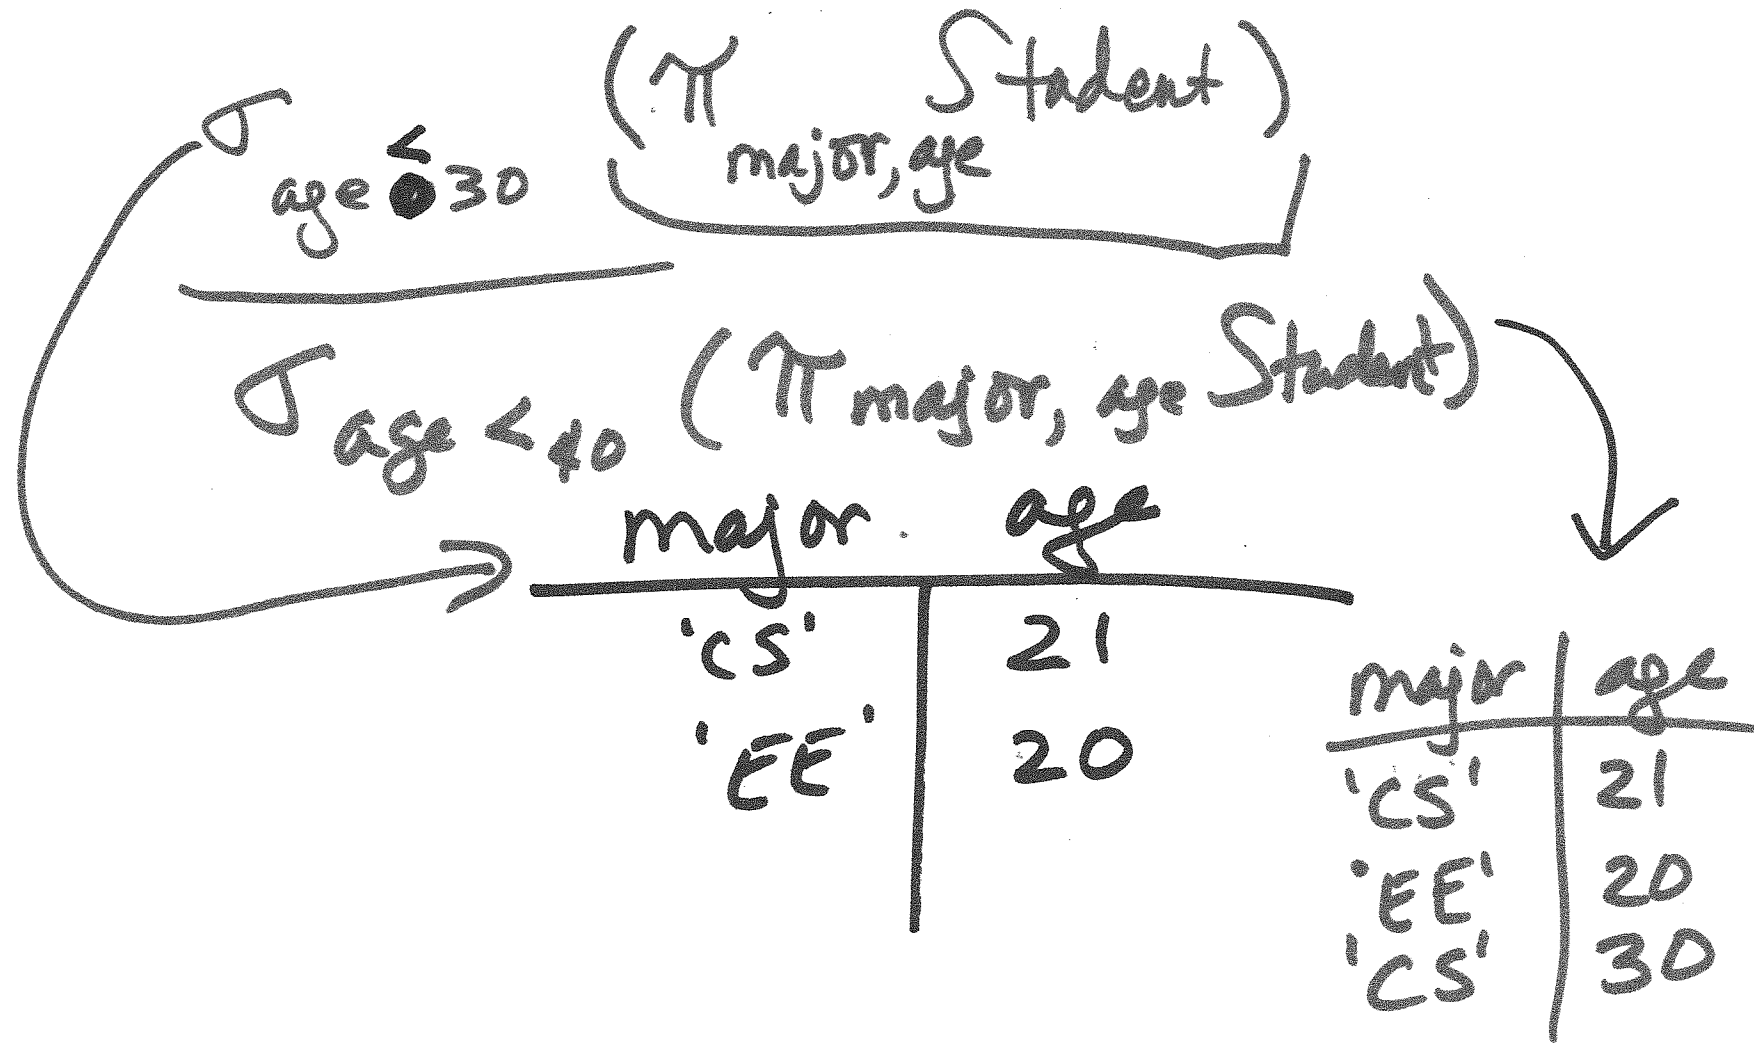 σ age < 30 (π major, age Student)
σ age < 40 (π major, age Student)
major age
'CS' 21
'EE' 20
major age
'CS' 21
'EE' 20
'CS' 30